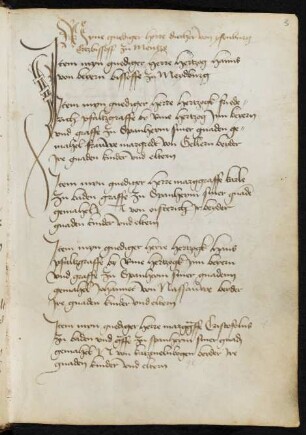 Myne gnediger here diether von ysenburg
Ertzbischoff zu Mentze
Item myn gnediger here hertzog Hanns
von beyern bischoffe zu Meydburg
Item myn gnediger here hertzoge fride
rich pfaltzgraffe by Rine hertzog inn beyern
vnd graffe zu Spanheim siner gnaden ge
mahel frauwe margreth von Gellern beider
ire gnaden kinder vnd eltern
Item myn gnediger here marggraffe karle
zu baden graffe zu Spanheim siner gnad
gemahel von osterich beider
gnaden kinder vnd eltern
Item myn gnediger herre hertzoge Hans
pfaltzgraffe by Rine hertzoge inn beyern
vnd graffe zu Spanheim siner gnaden
gemahel Johannet von Nassauwe beider
ire gnaden kinder vnd eltern
Item myn gnediger herre marggraffe Cristofelus
zu baden vnd graffe zu spanheim siner gnad
gemahel von katzenelnbogen beider ire
gnaden kinder vnd eltern